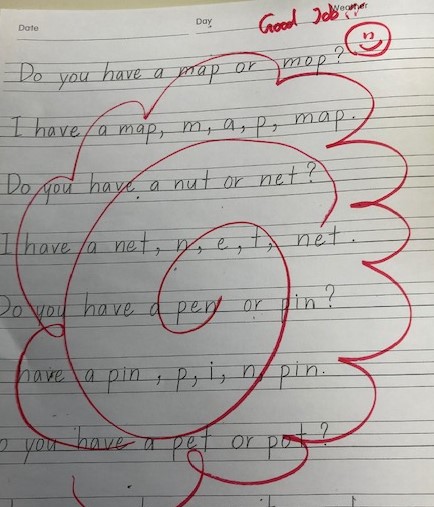 Date Day Weather
Good Job!
Do you have a map or mop?
I have a map, m, a, p, map.
Do you have a nut or net?
I have a net, n, e, t, net.
Do you have a pen or pin?
have a pin, p, i, n, pin.
you have a pet or pot?